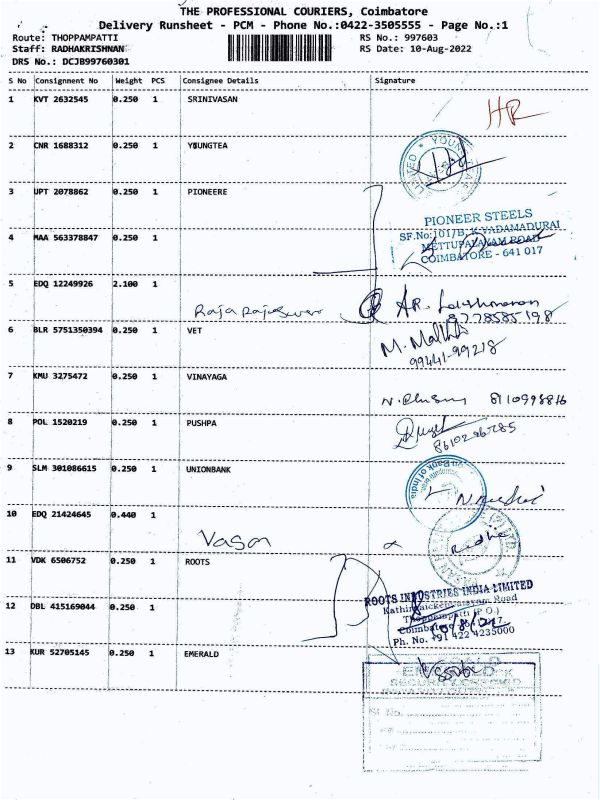 THE PROFESSIONAL COURIERS, Coimbatore
Delivery Runsheet - PCM - Phone No.:0422-3505555 - Page No.:1
Route: THOPPAMPATTI RS No.: 997603
Staff: RADHAKRISHNAN RS Date: 10-Aug-2022
DRS No.: DCJB99760301
S No Consignment No Weight PCS Consignee Details Signature
1 KVT 2632545 0.250 1 SRINIVASAN
HR
2 CNR 1688312 0.250 1 YOUNGTEA
3 UPT 2078862 0.250 1 PIONEERE
PIONEER STEELS
SF.No:101/B, K.VADAMADURAI
METTUPALAYAM ROAD
COIMBATORE - 641 017
4 MAA 563378847 0.250 1
5 EDQ 12249926 2.100 1
AR. Lakshmanan
8778585198
6 BLR 5751350394 0.250 1 VET
99441-99218
7 KMU 3275472 0.250 1 VINAYAGA
8110998816
8 POL 1520219 0.250 1 PUSHPA
9 SLM 301086615 0.250 1 UNIONBANK
Bank of India
10 EDQ 21424645 0.440 1
Vasan
Radha
11 VDK 6506752 0.250 1 ROOTS
ROOTS INDUSTRIES INDIA LIMITED
Road
Thoppampatti (P.O.)
Ph. No. +91 422 4235000
12 DBL 415169044 0.250 1
13 KUR 52705145 0.250 1 EMERALD